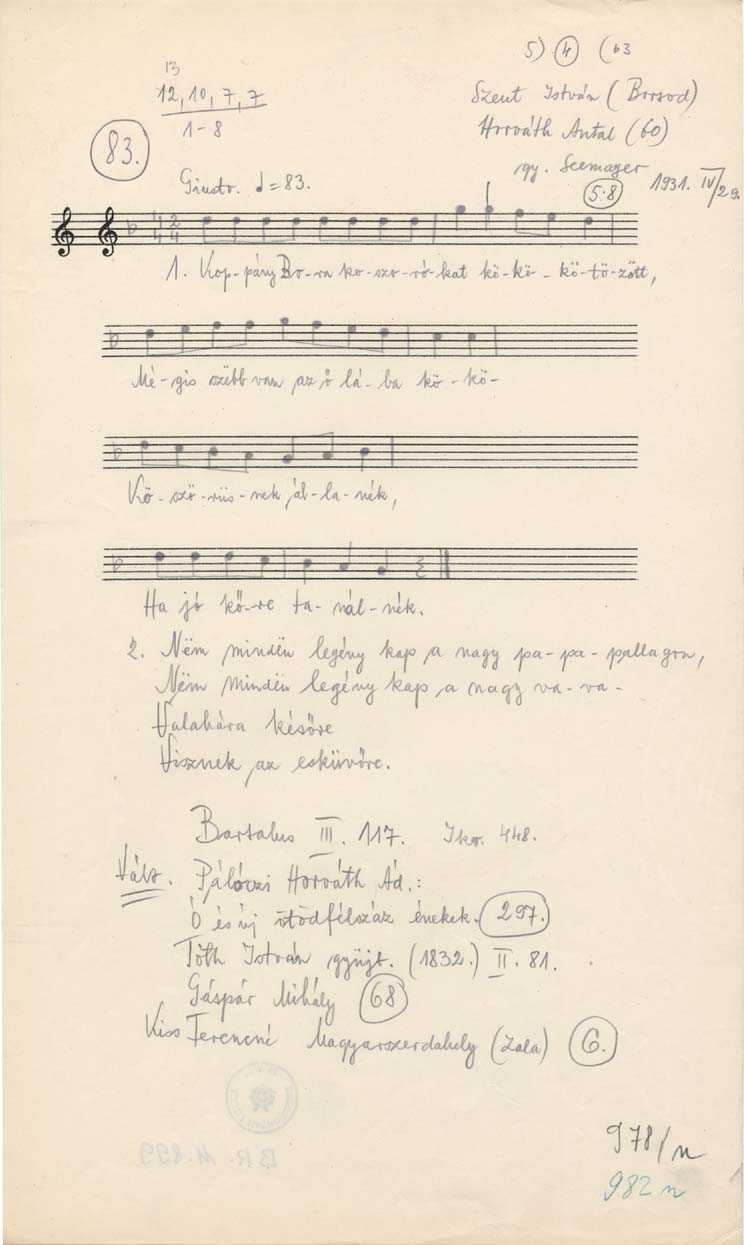 5) 4 (b3
13
12, 10, 7, 7
1-8
83.
Szent István (Borsod)
Horváth Antal (60)
gy. Seemayer
1931. IV/29.
5:8
Giusto. ♩=83.
4 2
4 4
1. Kop-pány Bo-ra ko-szo-ró-kat kö-kö-kö-tö-zött,
Mé-gis szëbb van az ő lá-ba kö-kö-
Kö-szö-rüs-nek ál-la-nék,
Ha jó kő-re ta-nál-nék.
2. Nëm mindën legény kap a nagy pa-pa-pallagon,
Nëm mindën legény kap a nagy va-va-
Valahára későre
Visznek az esküvőre.
Bartalus III. 117. Iko. 448.
Vált. Pálóczi Horváth Ád.:
Ó és új ötödfélszáz énekek. 297.
Tóth István gyüjt. (1832.) II. 81.
Gáspár Mihály 68
Kiss Ferencné Magyarszerdahely (Zala) 6.
B R. 11.899
978/n
982 n